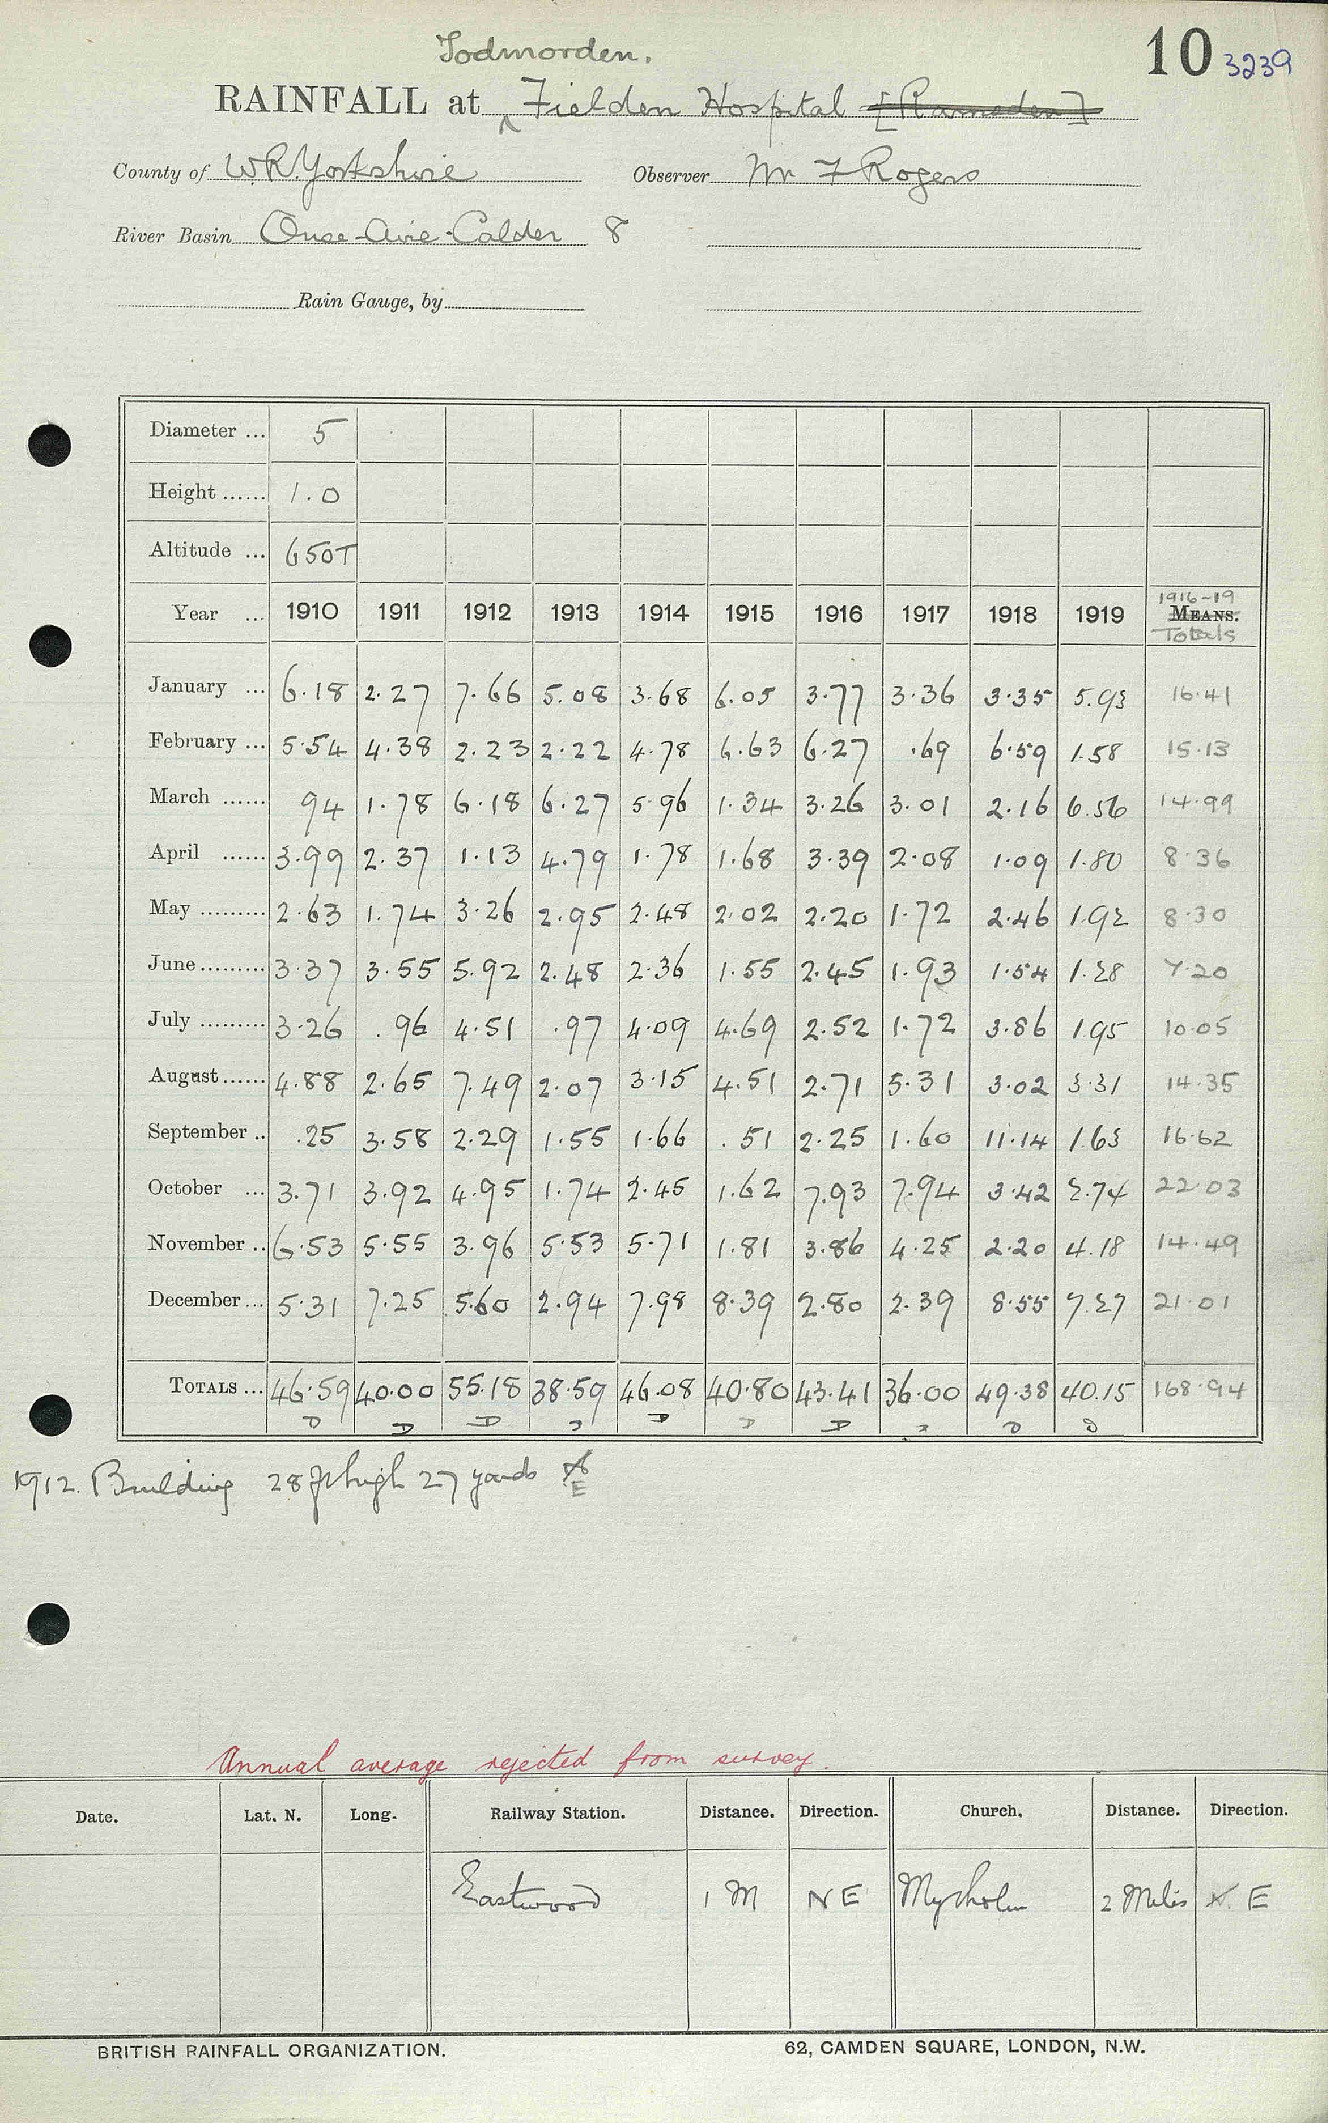 Todmorden.
10 3239
RAINFALL at Fielden Hospital [Ramsden]
County of W R Yorkshire Observer Mr F Rogers
River Basin Ouse-Aire-Calder 8
Rain Gauge, by
Diameter ... 5
Height ...... 1.0
Altitude ... 650T
1916-19
Year ... 1910 1911 1912 1913 1914 1915 1916 1917 1918 1919 MEANS.
Totals
January ... 6.18 2.27 7.66 5.08 3.68 6.05 3.77 3.36 3.35 5.93 16.41
February ... 5.54 4.38 2.23 2.22 4.78 6.63 6.27 .69 6.59 1.58 15.13
March ...... 94 1.78 6.18 6.27 5.96 1.34 3.26 3.01 2.16 6.56 14.99
April ...... 3.99 2.37 1.13 4.79 1.78 1.68 3.39 2.08 1.09 1.80 8.36
May ......... 2.63 1.74 3.26 2.95 2.48 2.02 2.20 1.72 2.46 1.92 8.30
June ......... 3.37 3.55 5.92 2.48 2.36 1.55 2.45 1.93 1.54 1.28 7.20
July ......... 3.26 .96 4.51 .97 4.09 4.69 2.52 1.72 3.86 1.95 10.05
August ...... 4.88 2.65 7.49 2.07 3.15 4.51 2.71 5.31 3.02 3.31 14.35
September .. .25 3.58 2.29 1.55 1.66 .51 2.25 1.60 11.14 1.63 16.62
October ... 3.71 3.92 4.95 1.74 2.45 1.62 7.93 7.94 3.42 2.74 22.03
November .. 6.53 5.55 3.96 5.53 5.71 1.81 3.86 4.25 2.20 4.18 14.49
December ... 5.31 7.25 5.60 2.94 7.98 8.39 2.80 2.39 8.55 7.27 21.01
TOTALS ... 46.59 40.00 55.18 38.59 46.08 40.80 43.41 36.00 49.38 40.15 168.94
1912. Building 28 ft high 27 yards E
Annual average rejected from survey.
Date. Lat. N. Long. Railway Station. Distance. Direction. Church. Distance. Direction.
Eastwood 1 M NE Mytholm 2 Miles N. E
BRITISH RAINFALL ORGANIZATION. 62, CAMDEN SQUARE, LONDON, N.W.